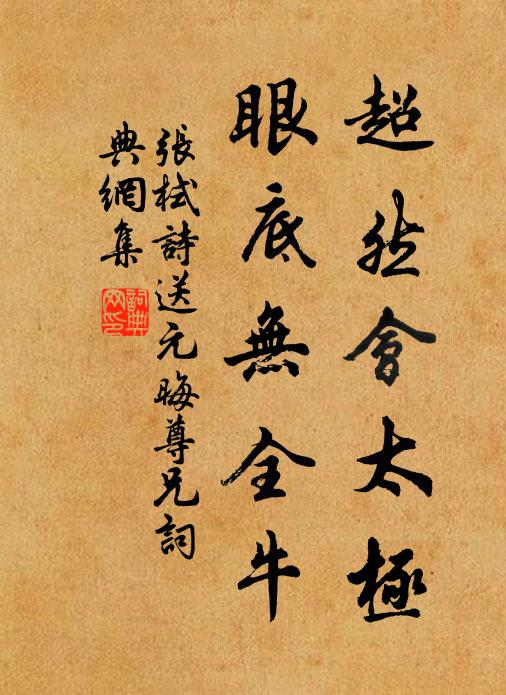 超然會太極
眼底無全牛
張栻詩送元晦尊兄詞
典網集
詞典
網印